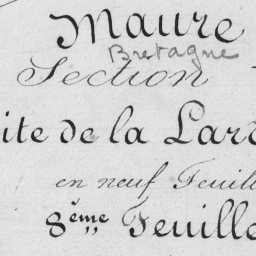 Maure
Bretagne
Section
ite de la Lard
en neuf Feuill
8ème Feuille